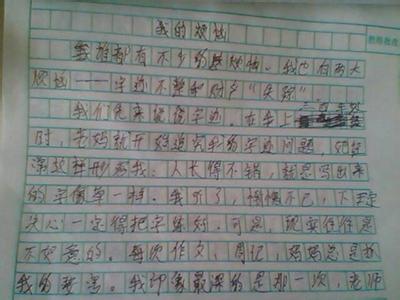 我的烦恼
谁都有不少的烦恼。我也有两大
烦恼——字迹不整和财产“失踪”
我们先来说说字迹。在手上三百年级
时，老妈就开始追究我的字迹问题，她曾
深这样形容我：人长得不错，就是写出来
的字像草一样。我听了，惭愧不已，下定
决心一定得把字练好。可是，现实往往是
不如意的。每次作文，周记，妈妈总是扮
我的。我印象最深的是那一次，老师